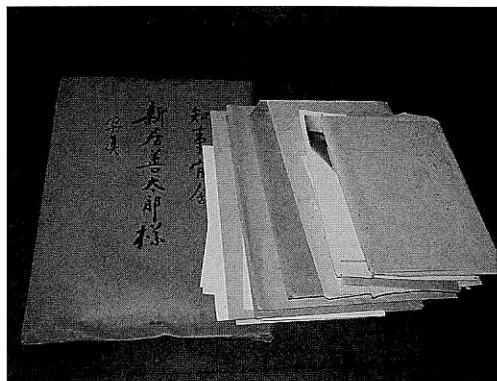 知事官舎
新居善太郎様
写真